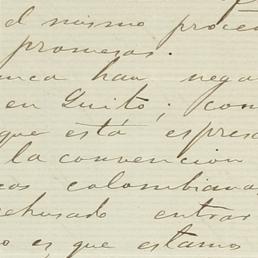 el mismo proce
promesas.
unca han nega
en Quito; con
que está espresa
la convencion
cos colombiana
echusado entrar
o es que estamos